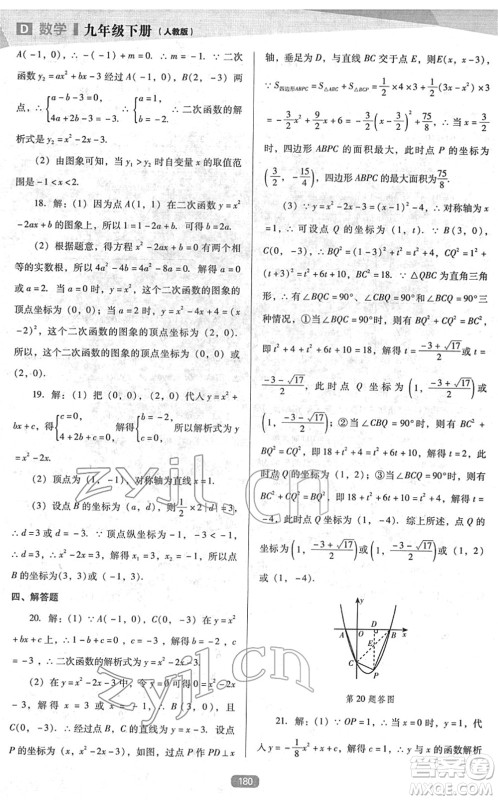 D 数学 九年级下册（人教版）
A(-1, 0), ∴ m=-1. ∵ 二次
函数 y₂=ax²+bx-3 经过 A(-1, 0), B(2, -3) 两
点, ∴ {a-b-3=0, 4a+2b-3=-3. ∴ {a=1, b=-2. ∴ 二次函数的解
析式是 y₂=x²-2x-3.
(2) 由图象可知, 当 y₁>y₂ 时自变量 x 的取值范
围是 -1<x<2.
18. 解：(1) 因为点 A(1, 1) 在二次函数 y=x²
-2ax+b 的图象上, 所以 1=1-2a+b. 可得 b=2a.
(2) 根据题意, 得方程 x²-2ax+b=0 有两个相
等的实数根, 所以 4a²-4b=4a²-8a=0. 解得 a=0
或 a=2. 当 a=0 时, y=x², 这个二次函数的图象的
顶点坐标为 (0, 0); 当 a=2 时, y=x²-4x+4=(x
-2)², 这个二次函数的图象的顶点坐标为 (2, 0).
所以, 这个二次函数的图象的顶点坐标为 (0, 0) 或
(2, 0).
19. 解：(1) 把 (0, 0), (2, 0) 代入 y=x²+
bx+c, 得 {c=0, 4+2b+c=0. 解得 {b=-2, c=0. 所以解析式为 y
=x²-2x.
(2) 顶点为 (1, -1), 对称轴为直线 x=1.
(3) 设点 B 的坐标为 (a, d), 则 1/2×2|d|=3,
∴ d=3 或 d=-3. ∵ 顶点纵坐标为 -1, -3<-1,
∴ d=3. ∴ x²-2x=3, 解得 x₁=3, x₂=-1. 所以点
B 的坐标为 (3, 3) 或 (-1, 3).
四、解答题
20. 解：(1) ∵ A(-1, 0), C(0, -3) 在 y=x²
+bx+c 上, ∴ {1-b+c=0, c=-3. 解得 {b=-2, c=-3.
∴ 二次函数的解析式为 y=x²-2x-3.
(2) 在 y=x²-2x-3 中, 令 y=0 可得 0=x²-2x
-3, 解得 x=3 或 x=-1. ∴ B(3, 0), 且
C(0, -3). ∴ 经过 B, C 两点的直线为 y=x-3. 设点
P 的坐标为 (x, x²-2x-3), 如图, 过点 P 作 PD⊥x
轴, 垂足为 D, 与直线 BC 交于点 E, 则 E(x, x-3).
∵ S四边形ABPC=S△ABC+S△BCP=1/2×4×3+1/2(3x-x²)×3
=-3/2x²+9/2x+6=-3/2(x-3/2)²+75/8, ∴ 当 x=3/2
时, 四边形 ABPC 的面积最大, 此时点 P 的坐标为
(3/2, -15/4), 四边形 ABPC 的最大面积为 75/8.
(3) ∵ y=x²-2x-3=(x-1)²-4, ∴ 对称轴为 x
=1, ∴ 可设点 Q 的坐标为 (1, t). ∵ B(3, 0),
C(0, -3), ∴ BQ²=(1-3)²+t²=t²+4, CQ²=1²+
(t+3)²=t²+6t+10, BC²=18. ∵ △QBC 为直角三角
形, ∴ 有∠BQC=90°、∠CBQ=90°和∠BCQ=90°三
种情况, ①当∠BQC=90°时, 则有 BQ²+CQ²=BC²,
即 t²+4+t²+6t+10=18, 解得 t=(-3+√17)/2 或 t=
(-3-√17)/2, 此时点 Q 坐标为 (1, (-3+√17)/2) 或
(1, (-3-√17)/2); ②当∠CBQ=90°时, 则有 BC²+
BQ²=CQ², 即 18+t²+4=t²+6t+10, 解得 t=2, 此
时点 Q 坐标为 (1, 2); ③当∠BCQ=90°时, 则有
BC²+CQ²=BQ², 即 18+t²+6t+10=t²+4, 解得 t=
-4, 此时点 Q 坐标为 (1, -4). 综上所述, 点 Q 的
坐标为 (1, (-3+√17)/2) 或 (1, (-3-√17)/2) 或 (1, 2)
或 (1, -4).
y
A O D B x
E
C
P
第20题答图
21. 解：(1) ∵ OP=1, ∴ 当 x=0 时, y=1, 代
入 y=-1/8x²+x+c, 解得 c=1, ∴ y 关于 x 的函数解析
180
zyjl.cn
zyjl.cn